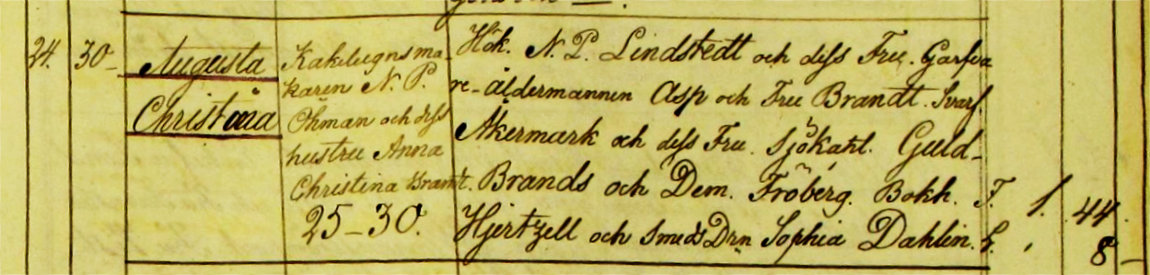 24. 30- Augusta Christina
Kakelugnsma-
karen N. P.
Öhman och dess
hustru Anna
Christina Bramt.
25-30.
Hök. N. P. Lindstedt och dess Fru. Garfva
re-åldermannen Asp och Fru Brandt. Svarf.
Åkermark och dess Fru. Sjökapt. Guld-
Brands och Dem. Fröberg. Bokh. F.
Hjertzell och Smeds Drn Sophia Dahlin.
1. 44.
8-